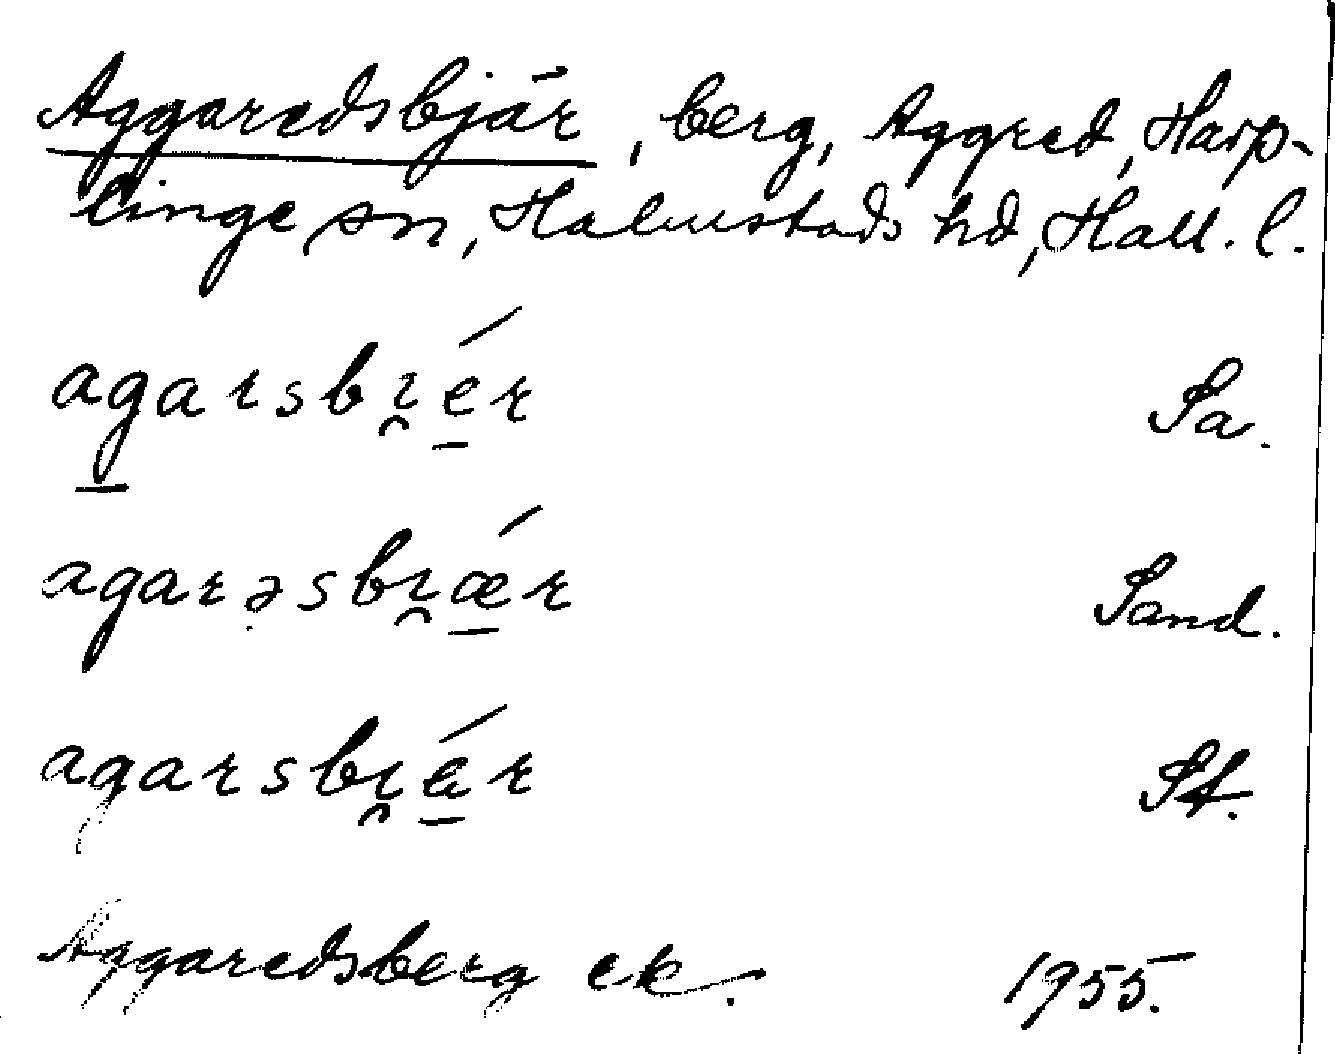 Aggaredsbjär, berg, Aggred, Harp-
linge sn, Halmstads hd, Hall. l.
agarsbı̯ér Sa.
agarəsbı̯ǽr Sand.
agarsbı̯ér St.
Aggaredsberg ek. 1955.